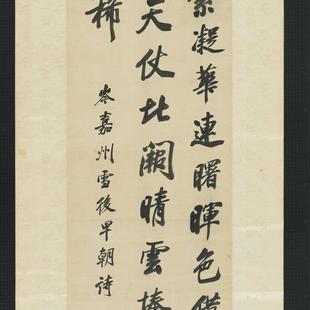 素凝華連曙暉色借
天仗北闕晴雲捧
稀
岑嘉州雪後早朝詩